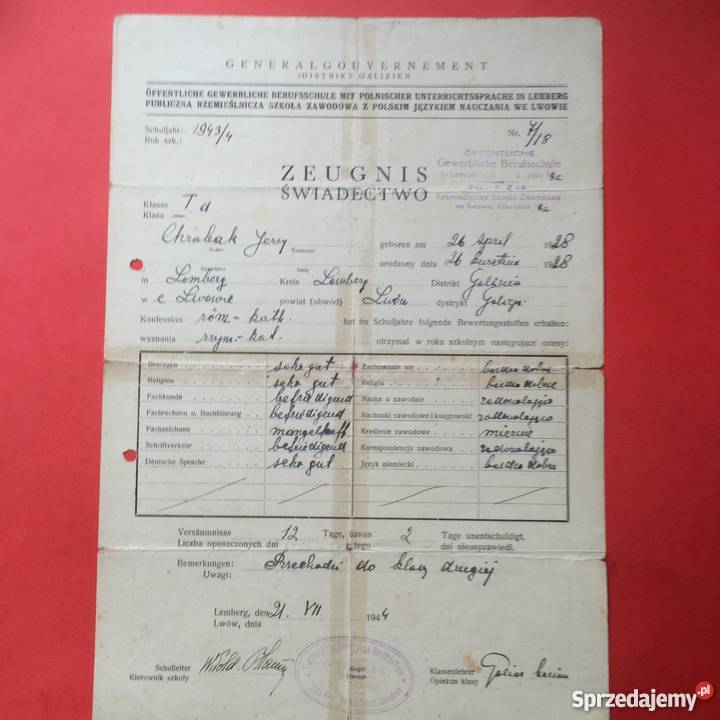 GENERALGOUVERNEMENT
DISTRIKT GALIZIEN
ÖFFENTLICHE GEWERBLICHE BERUFSSCHULE MIT POLNISCHER UNTERRICHTSSPRACHE IN LEMBERG
PUBLICZNA RZEMIEŚLNICZA SZKOŁA ZAWODOWA Z POLSKIM JĘZYKIEM NAUCZANIA WE LWOWIE
Schuljahr: 1943/4
Rok szk.:
Nr. 7/18
ÖFFENTLICHE
Gewerbliche Berufsschule
ZEUGNIS
ŚWIADECTWO
Rzemieślnicza Szkoła Zawodowa
Klasse I d
Klasa
Chrobak Jerzy
Name Vorname
geboren am 26 April 1928
Nazwisko Imię
urodzony dnia 26 kwietnia 1928
in Lemberg Kreis Lemberg Distrikt Galizien
w e Lwowie powiat (obwód) Lwów dystrykt Galicja
Konfession röm-kath. hat im Schuljahre folgende Bewertungsstufen erhalten:
wyznania rzym-kat. otrzymał w roku szkolnym następujące oceny:
Betragen sehr gut Zachowanie się bardzo dobre
Religion sehr gut Religia bardzo dobre
Fachkunde befriedigend Nauka o zawodzie zadowalająco
Fachrechnen u. Buchführung befriedigend Rachunki zawodowe i księgowość zadowalająco
Fachzeichnen mangelhaft Kreślenie zawodowe miernie
Schriftverkehr befriedigend Korespondencja zawodowa zadowalająco
Deutsche Sprache sehr gut Język niemiecki bardzo dobre
Versäumnisse 12 Tage, davon 2 Tage unentschuldigt.
Liczba opuszczonych dni z tego dni nieusprawiedl.
Bemerkungen: Przechodzi do klasy drugiej
Uwagi:
Lemberg, den 21. VII 1944
Lwów, dnia
Schulleiter Witold
Kierownik szkoły
Siegel
Klassenlehrer
Opiekun klasy
Sprzedajemy.pl